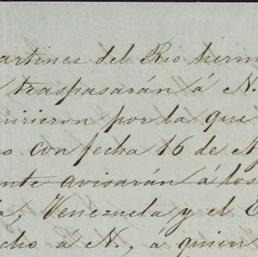 artines del Rio herm
traspasarán á N.
irieron por la que
o con fecha 16 de
ente avisarán á los
a, Venezuela y el E
cho á N., á quien